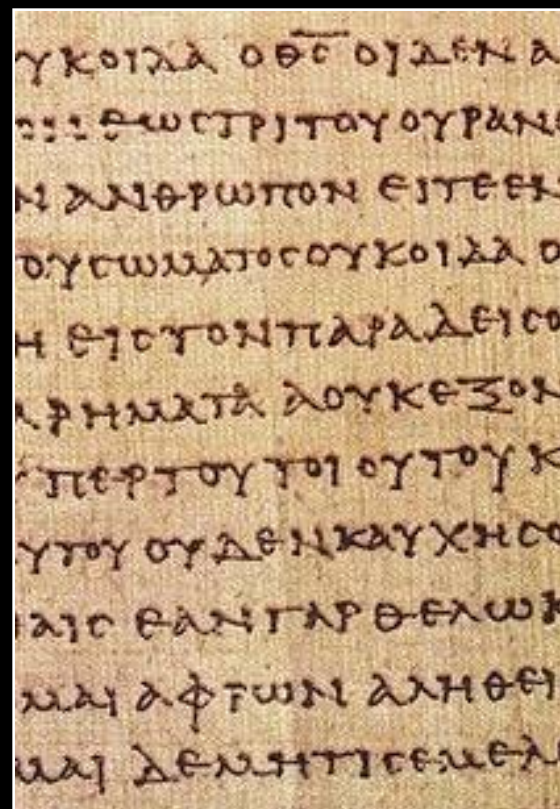 ΥΚΟΙΔΑ ΟΘ̅Ϲ̅ ΟΙΔΕΝ Α
ΕΩϹΤΡΙΤΟΥ ΟΥΡΑΝΟ
Ν ΑΝΘΡΩΠΟΝ ΕΙΤΕΕΝ
ΟΥϹΩΜΑΤΟϹΟΥΚΟΙΔΑ Ο
Η ΕΙϹΤΟΝΠΑΡΑΔΕΙϹΟ
ΑΡΗΜΑΤΑ ΑΟΥΚΕΞΟΝ
ΥΠΕΡΤΟΥ ΤΟΙΟΥΤΟΥ Κ
ΥΤΟΥ ΟΥΔΕΝΚΑΥΧΗϹΟ
ΑΙϹ ΕΑΝΓΑΡΘΕΛΩΚ
ΜΑΙ ΑΦΡΩΝ ΑΛΗΘΕΙ
ΜΑΙ ΔΕΜΗΤΙϹΕΜΕΛ